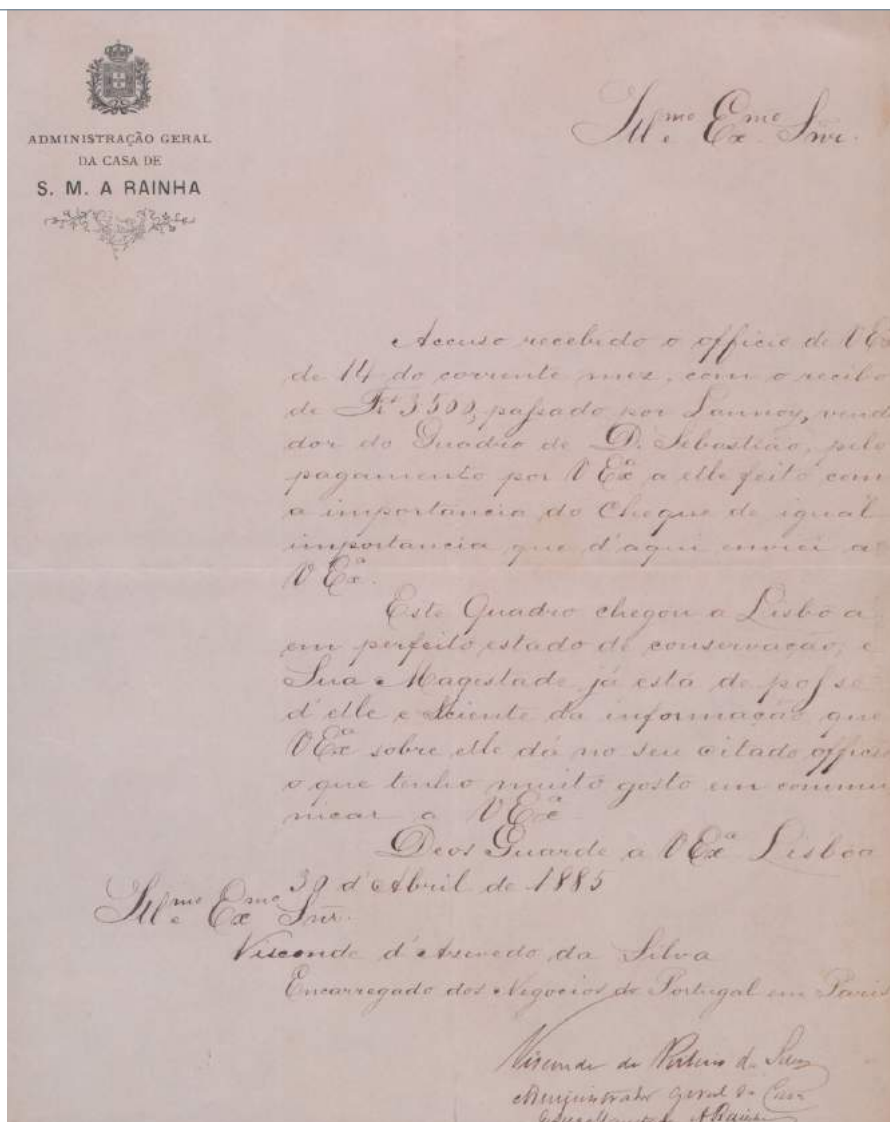 ADMINISTRAÇÃO GERAL
DA CASA DE
S. M. A RAINHA
Ill.mo e Ex.mo Snr.
Accuso recebido o officio de V Ex
de 14 do corrente mez, com o recibo
de 3500, passado por Lannoy, vend
dor do Quadro de D. Sebastião, pelo
pagamento por V Ex.a a elle feito com
a importancia do Cheque de igual
importancia que d'aqui enviei a
V Ex.a
Este Quadro chegou a Lisboa
em perfeito estado de conservação, e
Sua Magestade já está de posse
d'elle e sciente da informação que
V Ex.a sobre elle dá no seu citado officio
o que tenho muito gosto em commu
nicar a V Ex.a
Deos Guarde a V Ex.a Lisboa
30 d'Abril de 1885
Ill.mo e Ex.mo Snr.
Visconde d'Azevedo da Silva
Encarregado dos Negocios de Portugal em Paris
Visconde de da
Administrador Geral da Casa
A Rainha